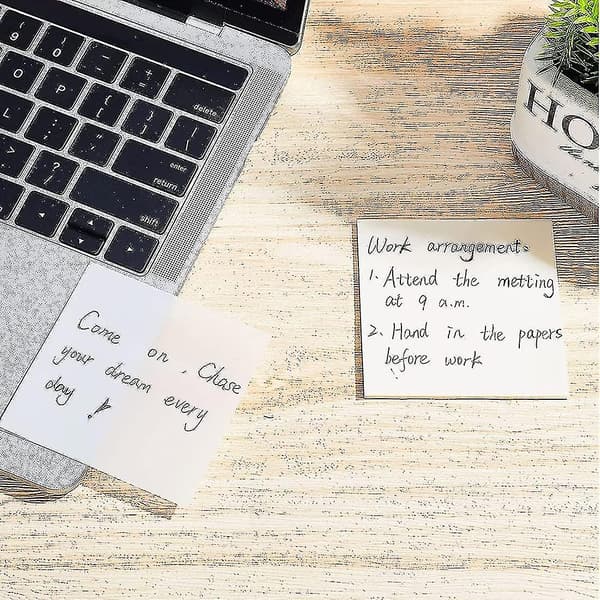 delete
enter
return
shift
Come on , Chase
your dream every
day !
Work arrangement:
1. Attend the metting
at 9 a.m.
2. Hand in the papers
before work
HO